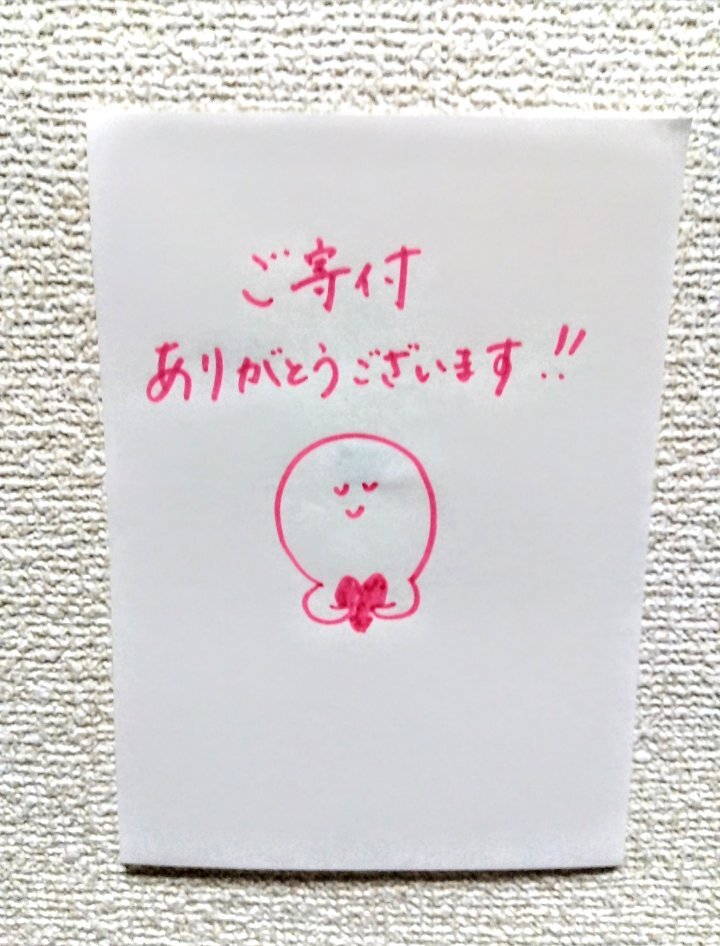 ご寄付
ありがとうございます!!